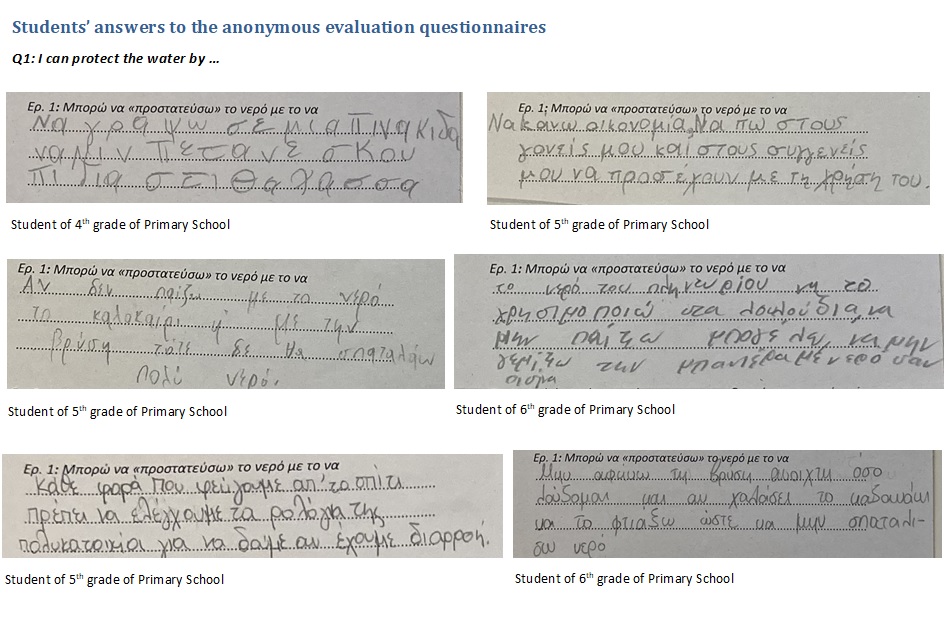 Students' answers to the anonymous evaluation questionnaires
Q1: I can protect the water by …
Ερ. 1: Μπορώ να «προστατεύσω» το νερό με το να
Να γραψω σε μια πινακιδα
να μιν πετανε σκου
πιδια στι θαλασσα
Student of 4th grade of Primary School
Ερ. 1: Μπορώ να «προστατεύσω» το νερό με το να
Να κανω οικονομια, Να πω στους
γονείς μου και στους συγγενείς
μου να προσέχουν με τη χρήση του.
Student of 5th grade of Primary School
Ερ. 1: Μπορώ να «προστατεύσω» το νερό με το να
Αν δεν παίζω με το νερό
το καλοκαίρι ή με την
βρύση τότε δε θα σπαταλάω
πολύ νερό.
Student of 5th grade of Primary School
Ερ. 1: Μπορώ να «προστατεύσω» το νερό με το να
το νερό του πληντυρίου να το
χρησιμοποιώ στα λουλούδια, να
μην παίζω μπουγέλο, να μην
γεμίζω την μπανιέρα με νερό σαν
Student of 6th grade of Primary School
Ερ. 1: Μπορώ να «προστατεύσω» το νερό με το να
κάθε φορά που φεύγουμε απ' το σπίτι
πρέπει να ελέγχουμε τα ρολόγια της
πολυκατοικίαι για να δούμε αν έχουμε διαρροή.
Student of 5th grade of Primary School
Ερ. 1: Μπορώ να «προστατεύσω» το νερό με το να
Μην αφήνω τη βρυση ανοιχτη όσο
λούζομαι και αν χαλάσει το καζανάκι
να το φτιαξω ώστε να μην σπαταλι-
σω νερό
Student of 6th grade of Primary School